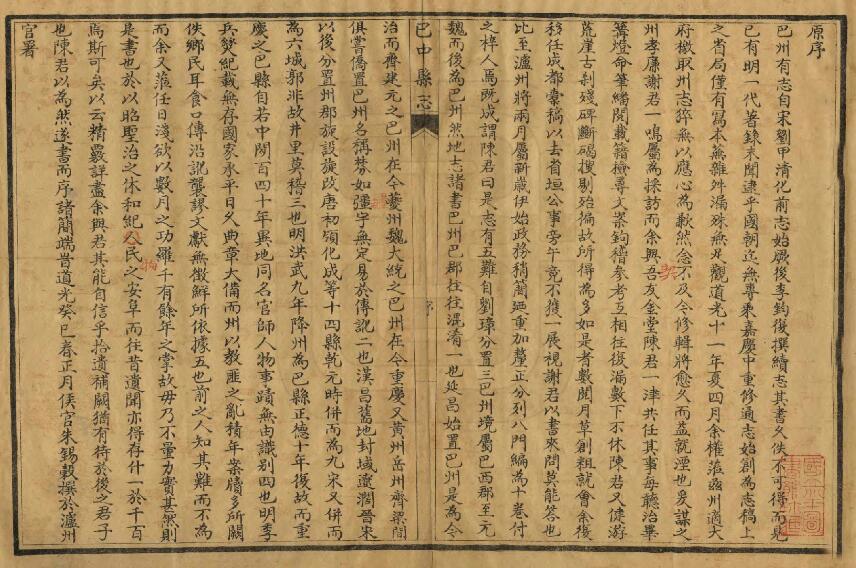 原序
巴州有志自宋劉甲清化前志始厥後李鈞復撰續志其書久佚不可得而見
已有明一代著錄未聞逮乎國朝迄無專乘嘉慶中重修通志始創為志稿上
之省局僅有寫本蕪雜舛漏殊無足觀道光十一年夏四月余權蒞茲州適大
府檄取州志猝無以應心為歉然念不及今修輯將愈久而益就湮也爰謀之
州孝廉謝君一鳴屬為採訪而余與吾友金堂陳君一津共任其事每聽治畢
篝燈命筆繙閱載籍檢尋文案鉤稽參考互相往復漏數下不休陳君又健游
荒崖古剎殘碑斷碣搜剔殆徧故所得為多如是者數閱月草創粗就會余復
移任成都橐稿以去省垣公事旁午竟不獲一展視謝君以書來問莫能答也
比至瀘州將兩月屬新歲伊始政務稍簡廼重加釐正分列八門編為十卷付
之梓人焉既成謂陳君曰是志有五難自劉璋分置三巴州境屬巴西郡至元
魏而後為巴州然地志諸書巴州巴郡往往混淆一也延昌始置巴州是為今
巴中縣志
序
治而齊建元之巴州在今夔州魏大統之巴州在今重慶又黃州岳州齊梁間
俱嘗僑置巴州名稱棼如疆字無定易於傳訛二也漢昌舊地封域遼濶晉宋
以後分置州郡旋設旋改唐初領化成等十四縣乾元時併而為九宋又併而
為六城郭非故井里莫稽三也明洪武九年降州為巴縣正德十年復故而重
慶之巴縣自若中閱百四十年異地同名官師人物事蹟無由識別四也明季
兵燹紀載無存國家承平日久典章大備而州以教匪之亂積年案牘多所闕
佚鄉民耳食口傳沿訛襲謬文獻無徵鮮所依據五也前之人知其難而不為
而余又蒞任日淺欲以數月之功雖千有餘年之掌故毋乃不量力實甚然則
是書也於以昭聖治之休和紀人民之安阜而往昔遺聞亦得存什一於千百
焉斯可矣以云精覈詳盡余與君其能自信乎拾遺補闕猶有待於後之君子
也陳君以為然遂書而序諸簡端旹道光癸巳春正月侯官朱錫穀撰於瀘州
官署